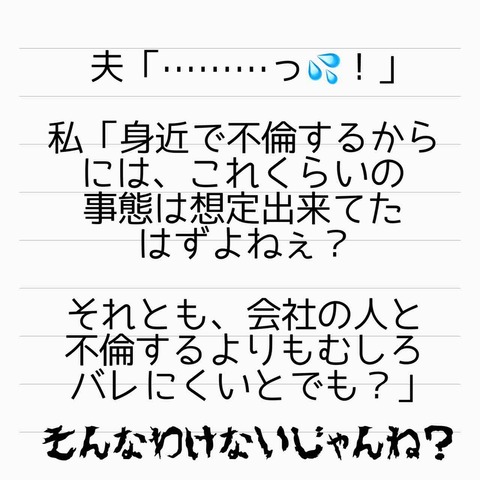 夫「………っ💦！」
私「身近で不倫するから
には、これくらいの
事態は想定出来てた
はずよねぇ？
それとも、会社の人と
不倫するよりもむしろ
バレにくいとでも？」
そんなわけないじゃんね？